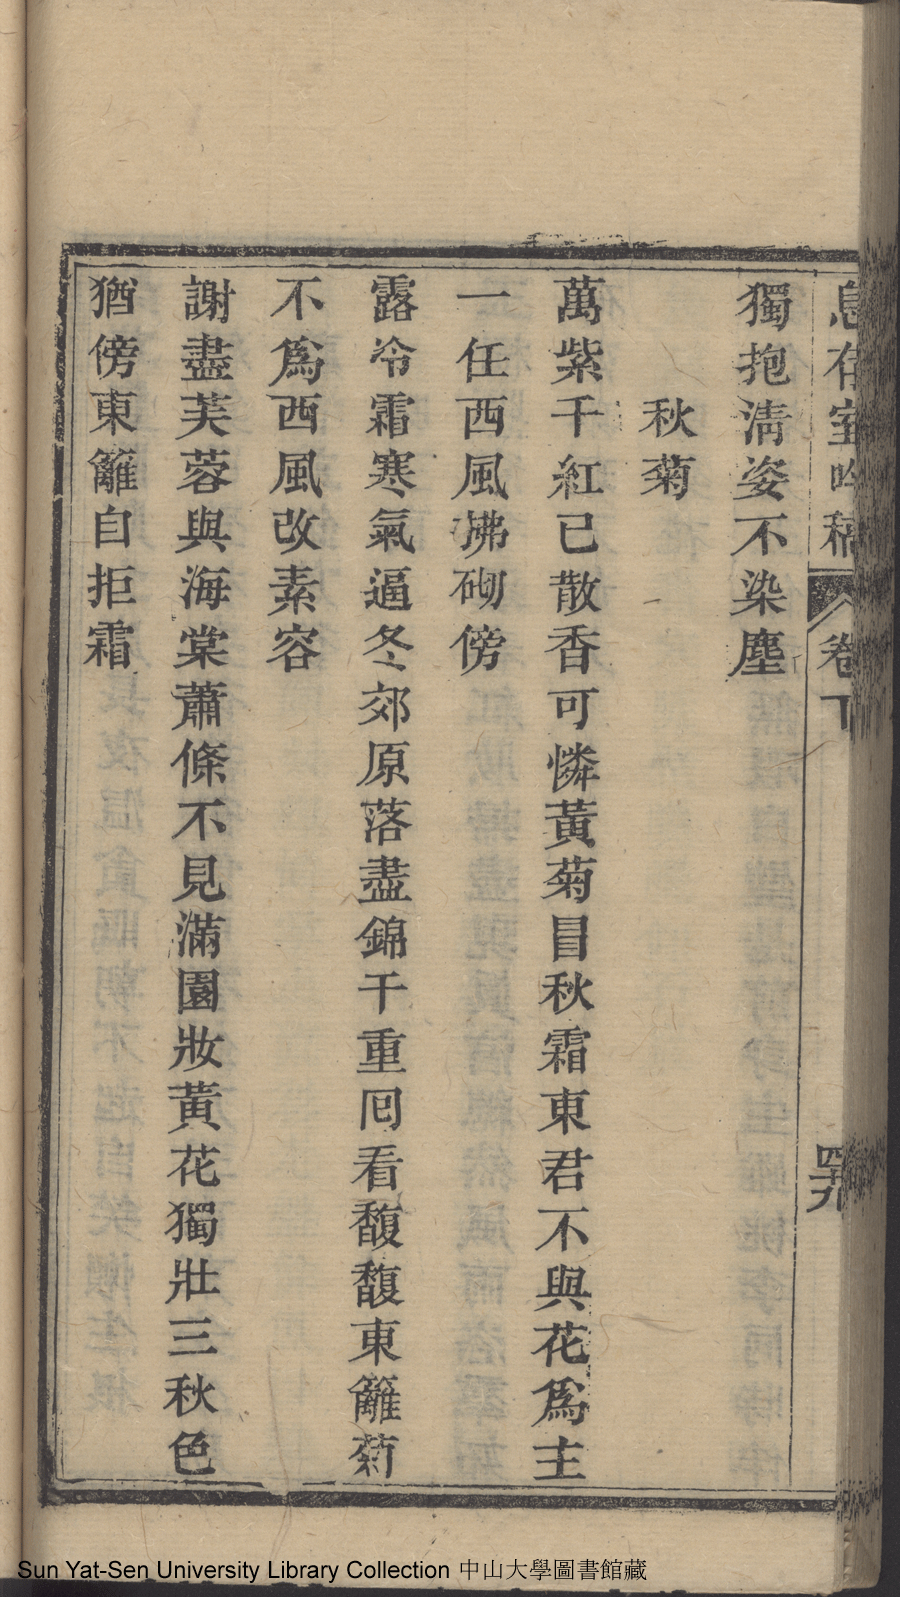 息存室吟稿 卷下 四九
獨抱淸姿不染塵
秋菊
萬紫千紅已散香可憐黃菊冒秋霜東君不與花爲主
一任西風拂砌傍
露冷霜寒氣逼冬郊原落盡錦千重囘看馥馥東籬菊
不爲西風改素容
謝盡芙蓉與海棠蕭條不見滿園妝黃花獨壯三秋色
猶傍東籬自拒霜
Sun Yat-Sen University Library Collection 中山大學圖書館藏